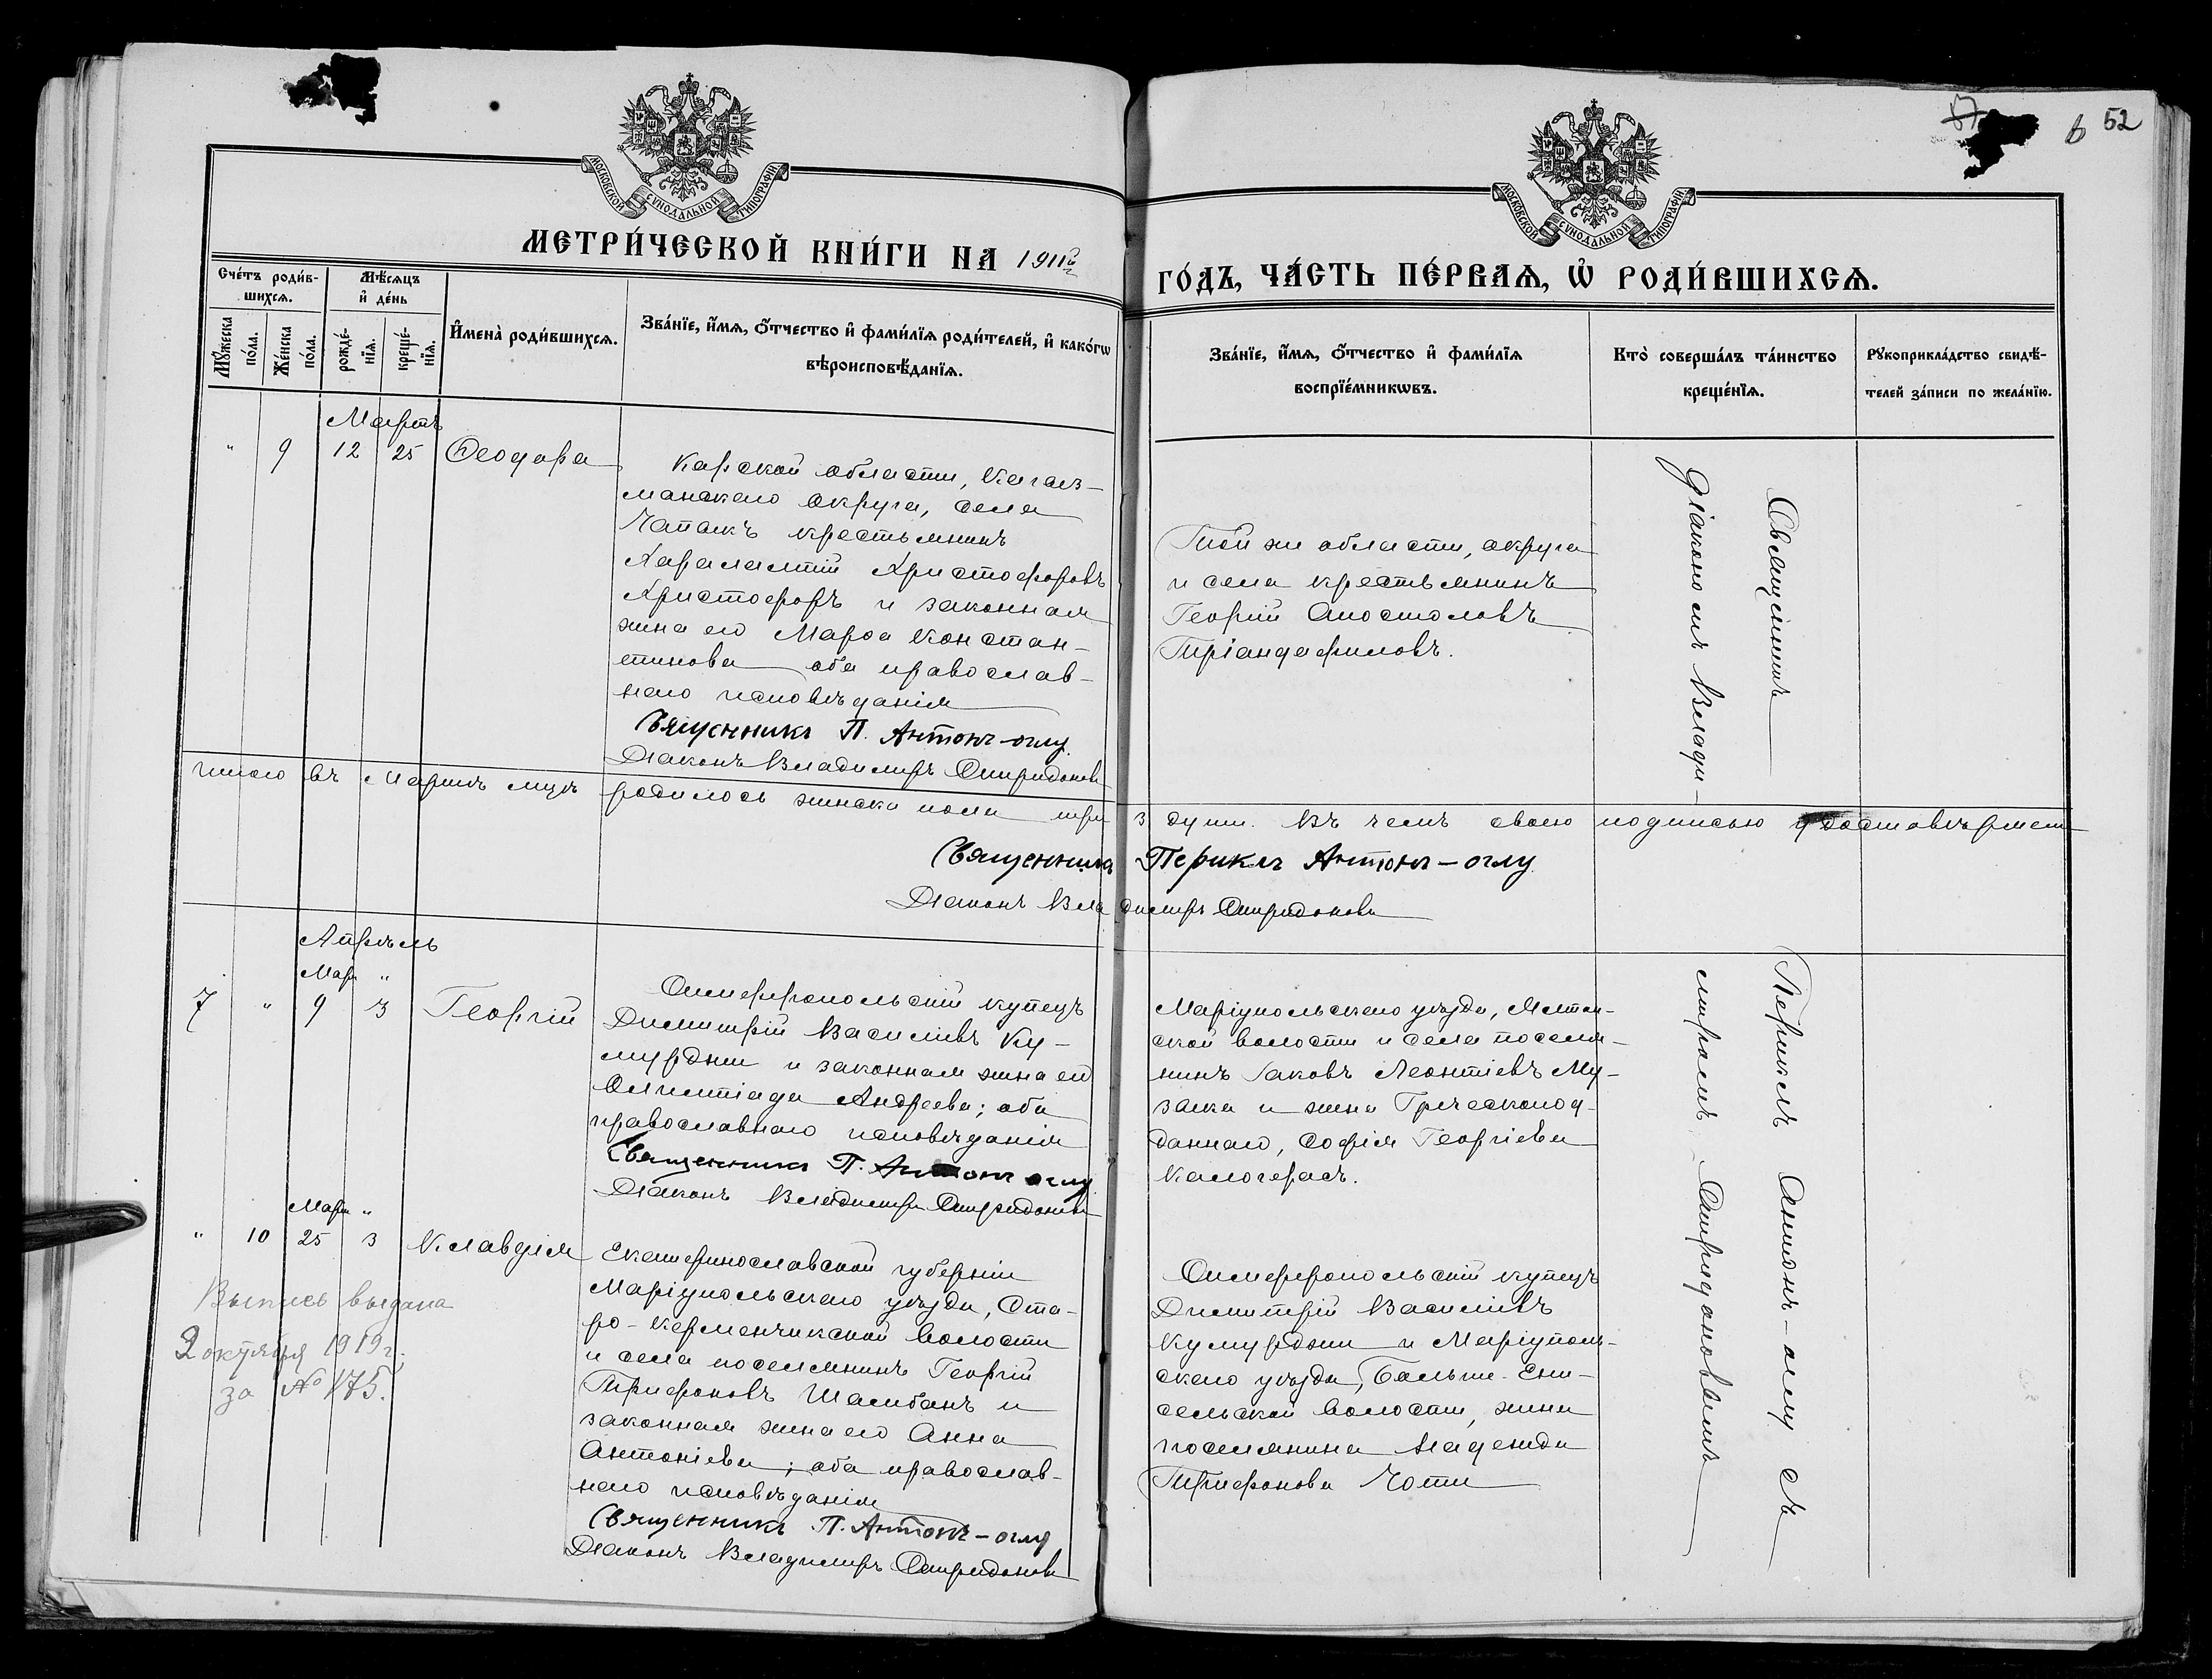 57
6 52
МОСКОВСКОЙ СѴНОДАЛЬНОЙ ТИПОГРАФІИ.
МОСКОВСКОЙ СѴНОДАЛЬНОЙ ТИПОГРАФІИ.
МЕТРИ́ЧЕСКОЙ КНИ́ГИ НА 1911й
ГО́ДЪ, ЧА́СТЬ ПЕ́РВАѦ, Ѡ҆ РОДИ́ВШИХСѦ.
Сче́тъ роди́в-
шихсѧ.
Мѣ́сѧцъ
и҆ де́нь
Мꙋ́жеска
по́ла.
Же́нска
по́ла.
рожде́-
нїѧ.
креще́-
нїѧ.
И҆мена̀ роди́вшихсѧ.
Зва́нїе, и҆́мѧ, ѻ҆́тчество и҆ фами́лїѧ роди́телей, и҆ како́гѡ
вѣроисповѣ́данїѧ.
Зва́нїе, и҆́мѧ, ѻ҆́тчество и҆ фами́лїѧ
воспрїе́мникѡвъ.
Кто̀ соверша́лъ та́инство
креще́нїѧ.
Рꙋкоприкла́дство свидѣ́-
телей за́писи по жела́нїю.
Мартъ
" 9 12 25 Ѳеодора
Карской области, Кагыз-
манскаго округа, села
Чапакъ крестьянинъ
Харалампій Христофоровъ
Христофоръ и законная
жена его Марѳа Констан-
тинова оба православ-
наго исповѣданія
Священникъ П. Антонъ-оглу.
Діаконъ Владимиръ Спиридоновъ
Той же области, округа
и села крестьянинъ
Георгій Апостоловъ
Тріандафиловъ.
Священникъ
Діакономъ Влади-
Итого въ Мартѣ мцѣ родилось женска пола три 3 души. Въ чемъ своею подписью удостовѣряемъ
Священникъ Периклъ Антонъ-оглу
Діаконъ Владимиръ Спиридоновъ
Апрѣль
Мар. "
7 " 9 3 Георгій
Симферопольскій купецъ
Димитрій Василіевъ Ку-
мурджи и законная жена его
Олимпіада Андреева; оба
православнаго исповѣданія
Священникъ П. Антонъ оглу
Діаконъ Владимиръ Спиридоновъ
Маріупольскаго уѣзда, Ялтин-
ской волости и села поселя-
нинъ Іаковъ Леонтіевъ Му-
зака и жена Греческопод-
даннаго, Софія Георгіева
Калогерасъ.
Мар. "
" 10 25 3 Клавдія
Екатеринославской губерніи
Маріупольскаго уѣзда, Ста-
ро-Керменчикской волости
и села поселянинъ Георгій
Трифоновъ Шамбанъ и
законная жена его Анна
Антоніева; оба православ-
наго исповѣданія
Священникъ П. Антонъ-оглу
Діаконъ Владимиръ Спиридоновъ
Симферопольскій купецъ
Димитрій Василіевъ
Кумурджи и Маріуполь-
скаго уѣзда, Больше-Ени-
сельской волости, жена
поселянина Надежда
Трифонова Чопи
Периклъ Антонъ-оглу съ
миромъ Спиридоновымъ
Выпись выдана
2 октября 1919 г.
за № 175.